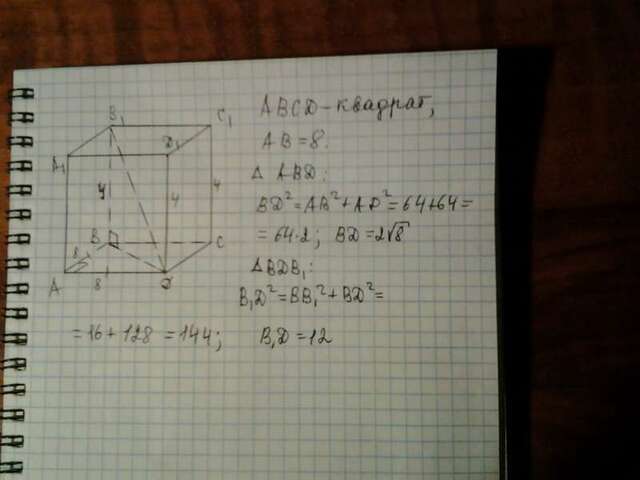 B₁
C₁
A₁
D₁
4
4
4
B
C
8
A
8
D
ABCD – квадрат,
AB = 8.
Δ ABD:
BD² = AB² + AD² = 64+64 =
= 64·2; BD = 2√8
Δ BDB₁:
B₁D² = BB₁² + BD² =
= 16 + 128 = 144; B₁D = 12